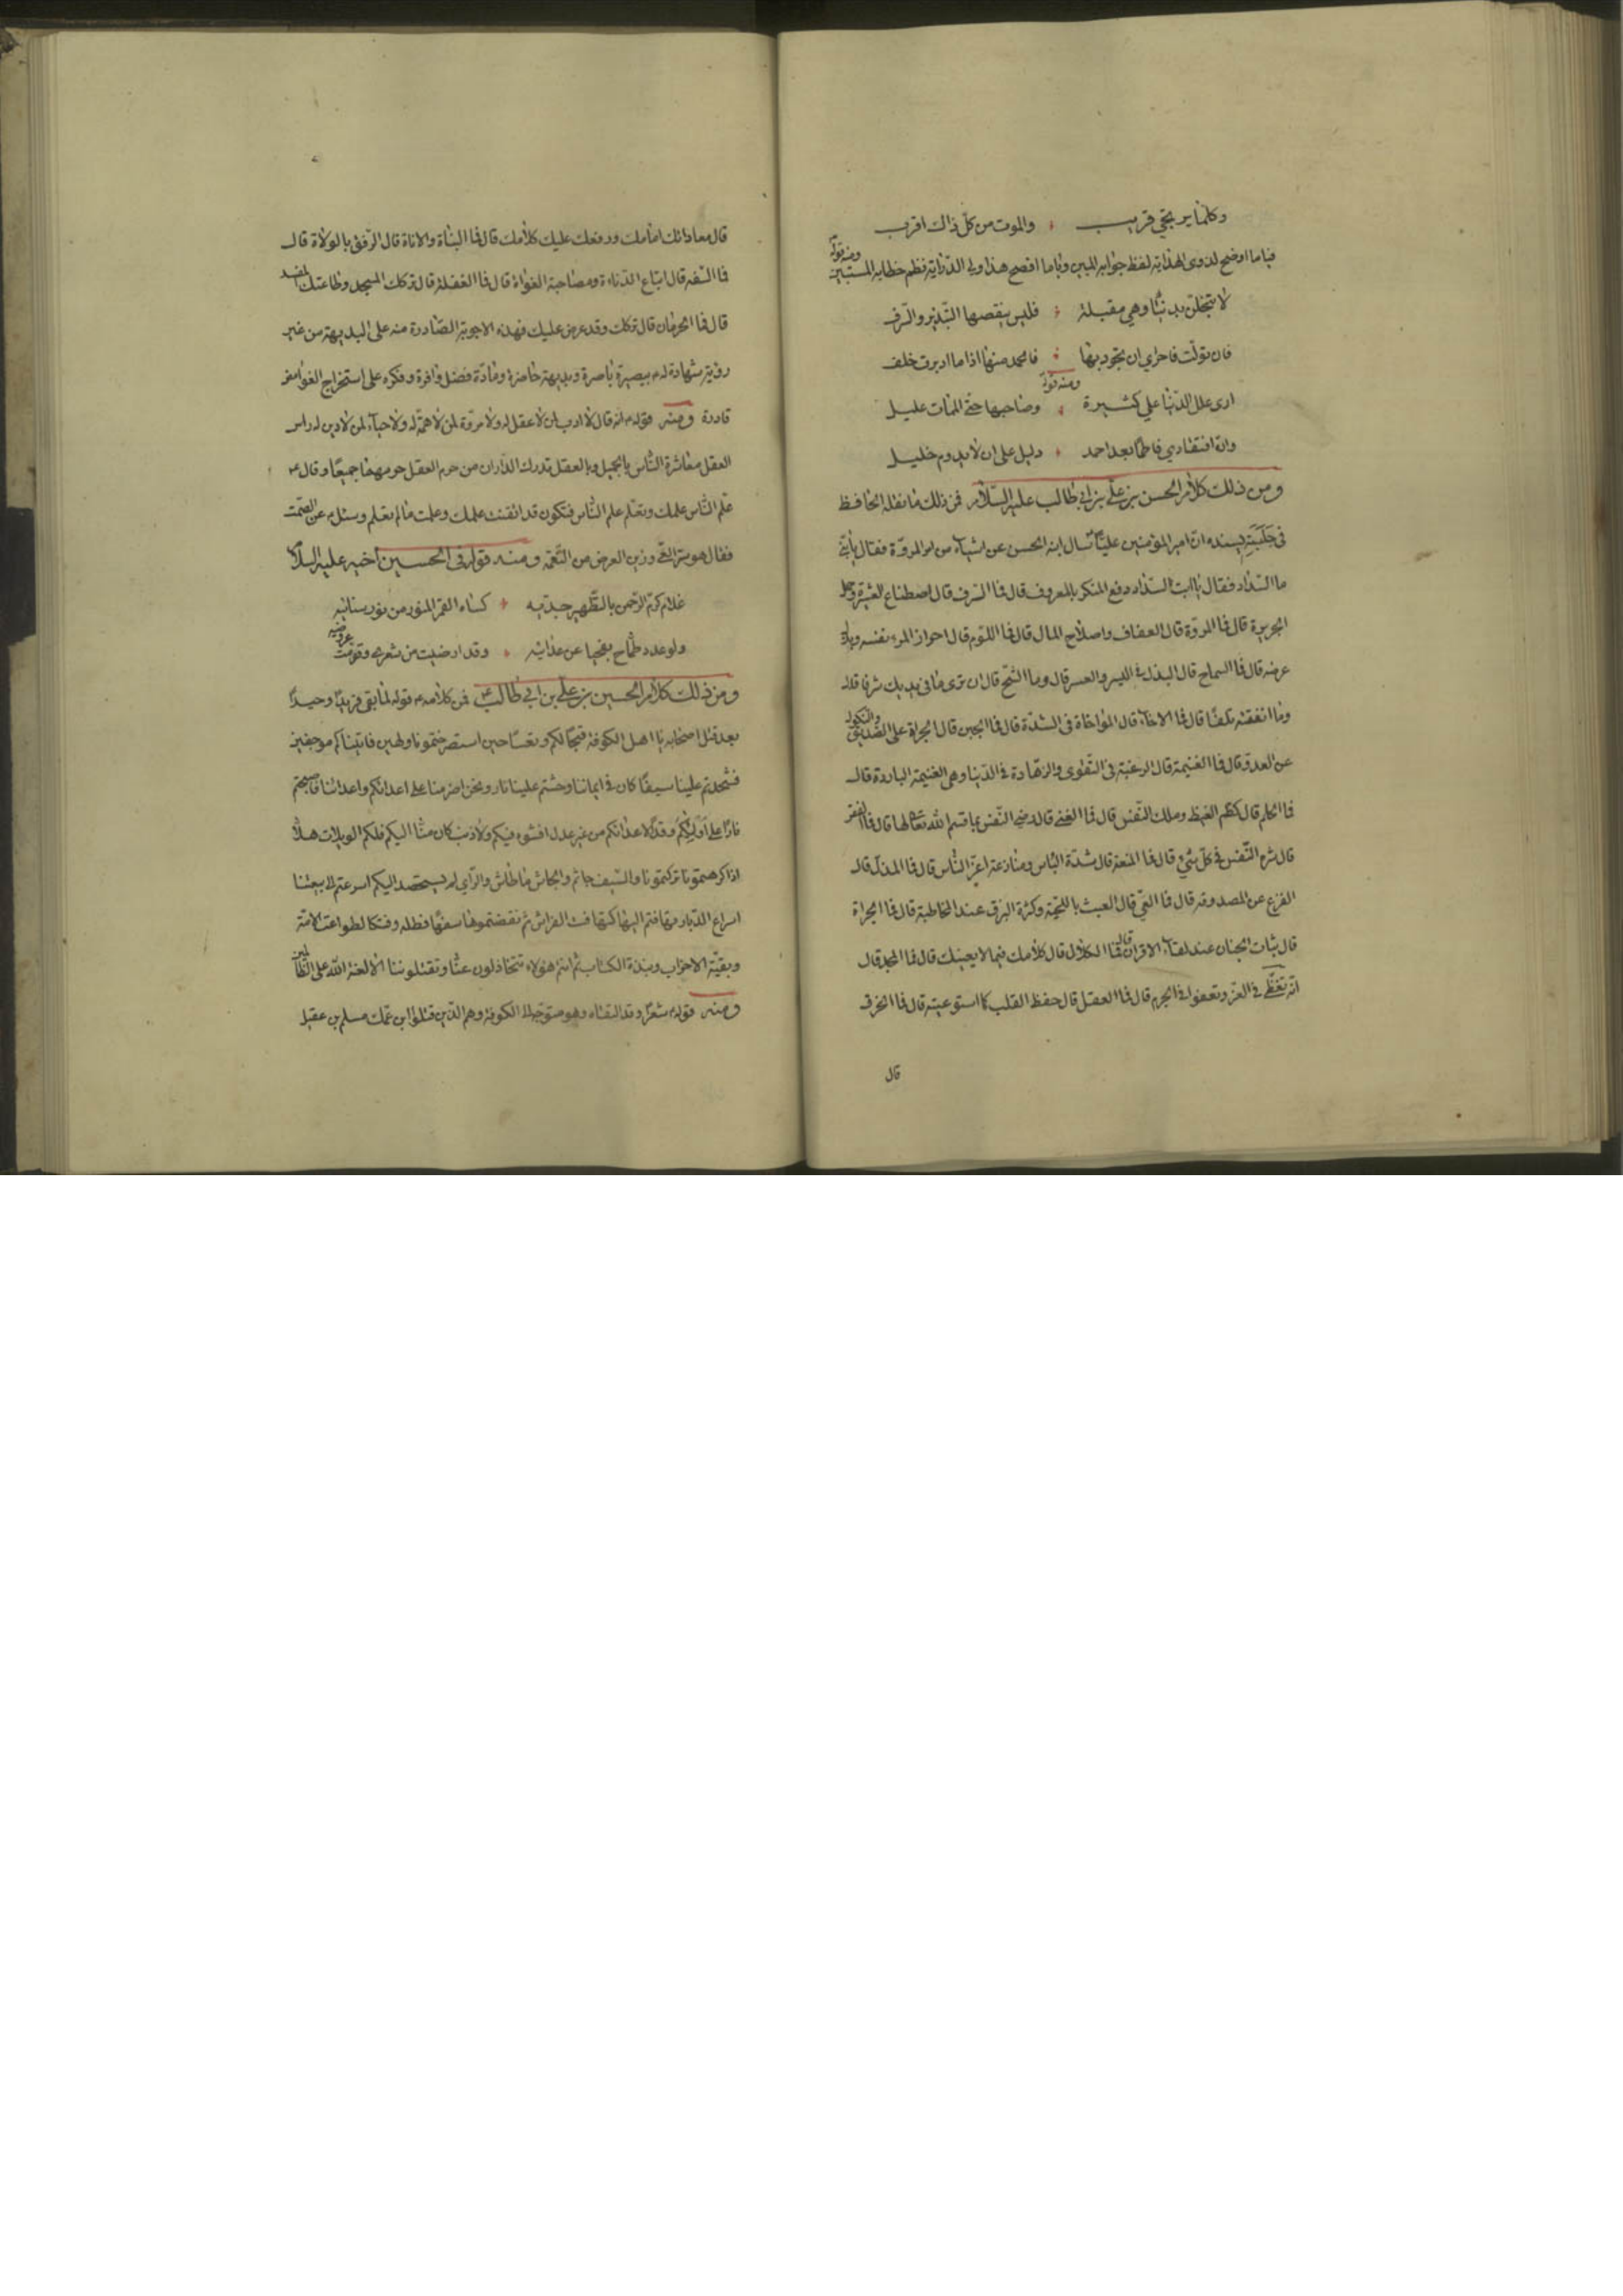 وكلما يرتجي قريب والموت من كل ذاك اقرب
فياما اوضح لذوى الهداية لفظ جوابه المبين وياما افصح هذا ولي الدراية نظم خطابه المستبين ومنه قوله
لا تبخلن بدنيا وهي مقبلة فليس ينقصها التبذير والسرف
فان تولت فاحرى ان تجود بها فالحمد منها اذا ما ادبرت خلف
ومنه قوله
ارى علل الدنيا علي كثيرة وصاحبها حتى الممات عليل
وان افتقادي فاطما بعد احمد دليل على ان لا يدوم خليل
ومن ذلك كلام الحسن بن علي بن ابي طالب عليه السلام فمن ذلك ما نقله الحافظ
في حليته بسنده ان امير المؤمنين عليا سال ابنه الحسن عن اشياء من امر المروة فقال يا بني
ما السداد فقال يا ابت السداد دفع المنكر بالمعروف قال فما الشرف قال اصطناع العشيرة وحمل
الجريرة قال فما المروة قال العفاف واصلاح المال قال فما اللوم قال احراز المرء نفسه وبذله
عرضه قال فما السماح قال البذل في اليسر والعسر قال وما الشح قال ان ترى ما في يديك شرفا قال
وما انفقته تلفا قال فما الاخاء قال المؤاخاة في الشدة قال فما الجبن قال الجراة على الصديق والنكول
عن العدو قال فما الغنيمة قال الرغبة في التقوى والزهادة في الدنيا وهي الغنيمة الباردة قال
فما الحلم قال كظم الغيظ وملك النفس قال فما الغنى قال رضى النفس بما قسم الله تعالى لها قال فما الفقر
قال شره النفس في كل شئ قال فما المنعة قال شدة الباس ومنازعة اعز الناس قال فما الذل قال
الفزع عن المصدوقة قال فما العي قال العبث باللحية وكثرة البزق عند المخاطبة قال فما الجراة
قال ثبات الجنان عند لقاء الاقران قال فما الكلال قال كلامك فيما لا يعنيك قال فما المجد قال
ان تعطى في العزم وتعفو في الجرم قال فما العقل قال حفظ القلب كلما استوعيته قال فما الخرق
قال
قال معاداتك امامك ورفعك عليك كلامك قال فما السناة والاناة قال الرفق بالولاة قال
فما السفه قال اتباع الدناءة ومصاحبة الغواة قال فما الغفلة قال تركك المسجد وطاعتك المفسد
قال فما الحرمان قال تركك وقد عرض عليك فهذه الاجوبة الصادرة منه على البديهة من غير
روية شهادة له ببصيرة باصرة وبديهة حاضرة ومادة فضل وافرة وفكره على استخراج الغوامض
قادرة ومنه قوله انه قال لا ادب لمن لا عقل له ولا مروة لمن لا همة له ولا حياء لمن لا دين له راس
العقل معاشرة الناس بالجميل وبالعقل تدرك الداران من حرم العقل حرمهما جميعا وقال
علم الناس علمك وتعلم علم الناس فتكون قد اتقنت علمك وعلمت ما لم تعلم وسئل عن الصمت
فقال هو ستر الغي وزين العرض من النعمة ومنه قوله في الحسين اخيه عليه السلام
غلام كرم الرحمن بالتطهير جديه كساه القمر المنور من نور سنائيه
ولو عدد طماح نفحيا عن عداتيه وقد ارضيت من شعري وقومت عروضيه
ومن ذلك كلام الحسين بن علي بن ابي طالب فمن كلامه قوله لما بقي فريدا وحيدا
بعد قتل اصحابه يا اهل الكوفة قبحا لكم وتعسا حين استصرختمونا ولهين فاتيناكم موجفين
فشحذتم علينا سيفا كان في ايماننا وحششتم علينا نار ونحن اضرمنا على اعدائكم واعدائنا فاصبحتم
نارا على اوليائكم وقد لاعدائكم من غير عدل افشوه فيكم ولا ذنب كان منا اليكم فلكم الويلات هلا
اذا كرهتمونا تركتمونا والسيف جاثم والجاش ما طاش والراي لم يستحصد اليكم اسرعتم الى بيعتنا
اسراع الدبا وتهافتم اليها كتهافت الفراش ثم نقضتموها سفها فظلة وفتكا لطواغت الامة
وبقية الاحزاب ونبذة الكتاب ثم انتم هؤلاء تتخاذلون عنا وتقتلوننا الا لعنة الله على الظالمين
ومنه قوله شعرا وقد التقاه وهو متوجه الى الكوفة وهم الذين قتلوا ابن عمك مسلم بن عقيل